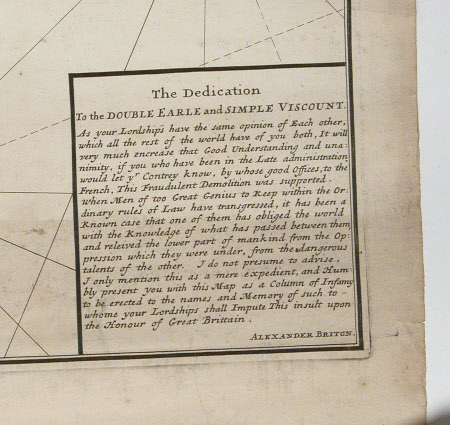 The Dedication
To the DOUBLE EARLE and SIMPLE VISCOUNT.
As your Lordships have the same opinion of Each other,
which all the rest of the world have of you both, It will
very much encrease that Good Understanding and una-
nimity, if you who have been in the Late administration
would let yr Contrey know, by whose good Offices, to the
French, This Fraudulent Demolition was supported.
when Men of too Great Genius to Keep within the Or-
dinary rules of Law have transgressed, it has been a
Known case that one of them has obliged the world
with the Knowledge of what has passed between them
and releived the lower part of mankind from the Op-
pression which they were under, from the dangerous
talents of the other. I do not presume to advise,
I only mention this as a mere expedient, and Hum
bly present you with this Map as a Column of Infamy
to be erected to the names and Memory of such to -
whome your Lordships shall Impute This insult upon
the Honour of Great Brittain.
ALEXANDER BRITON.